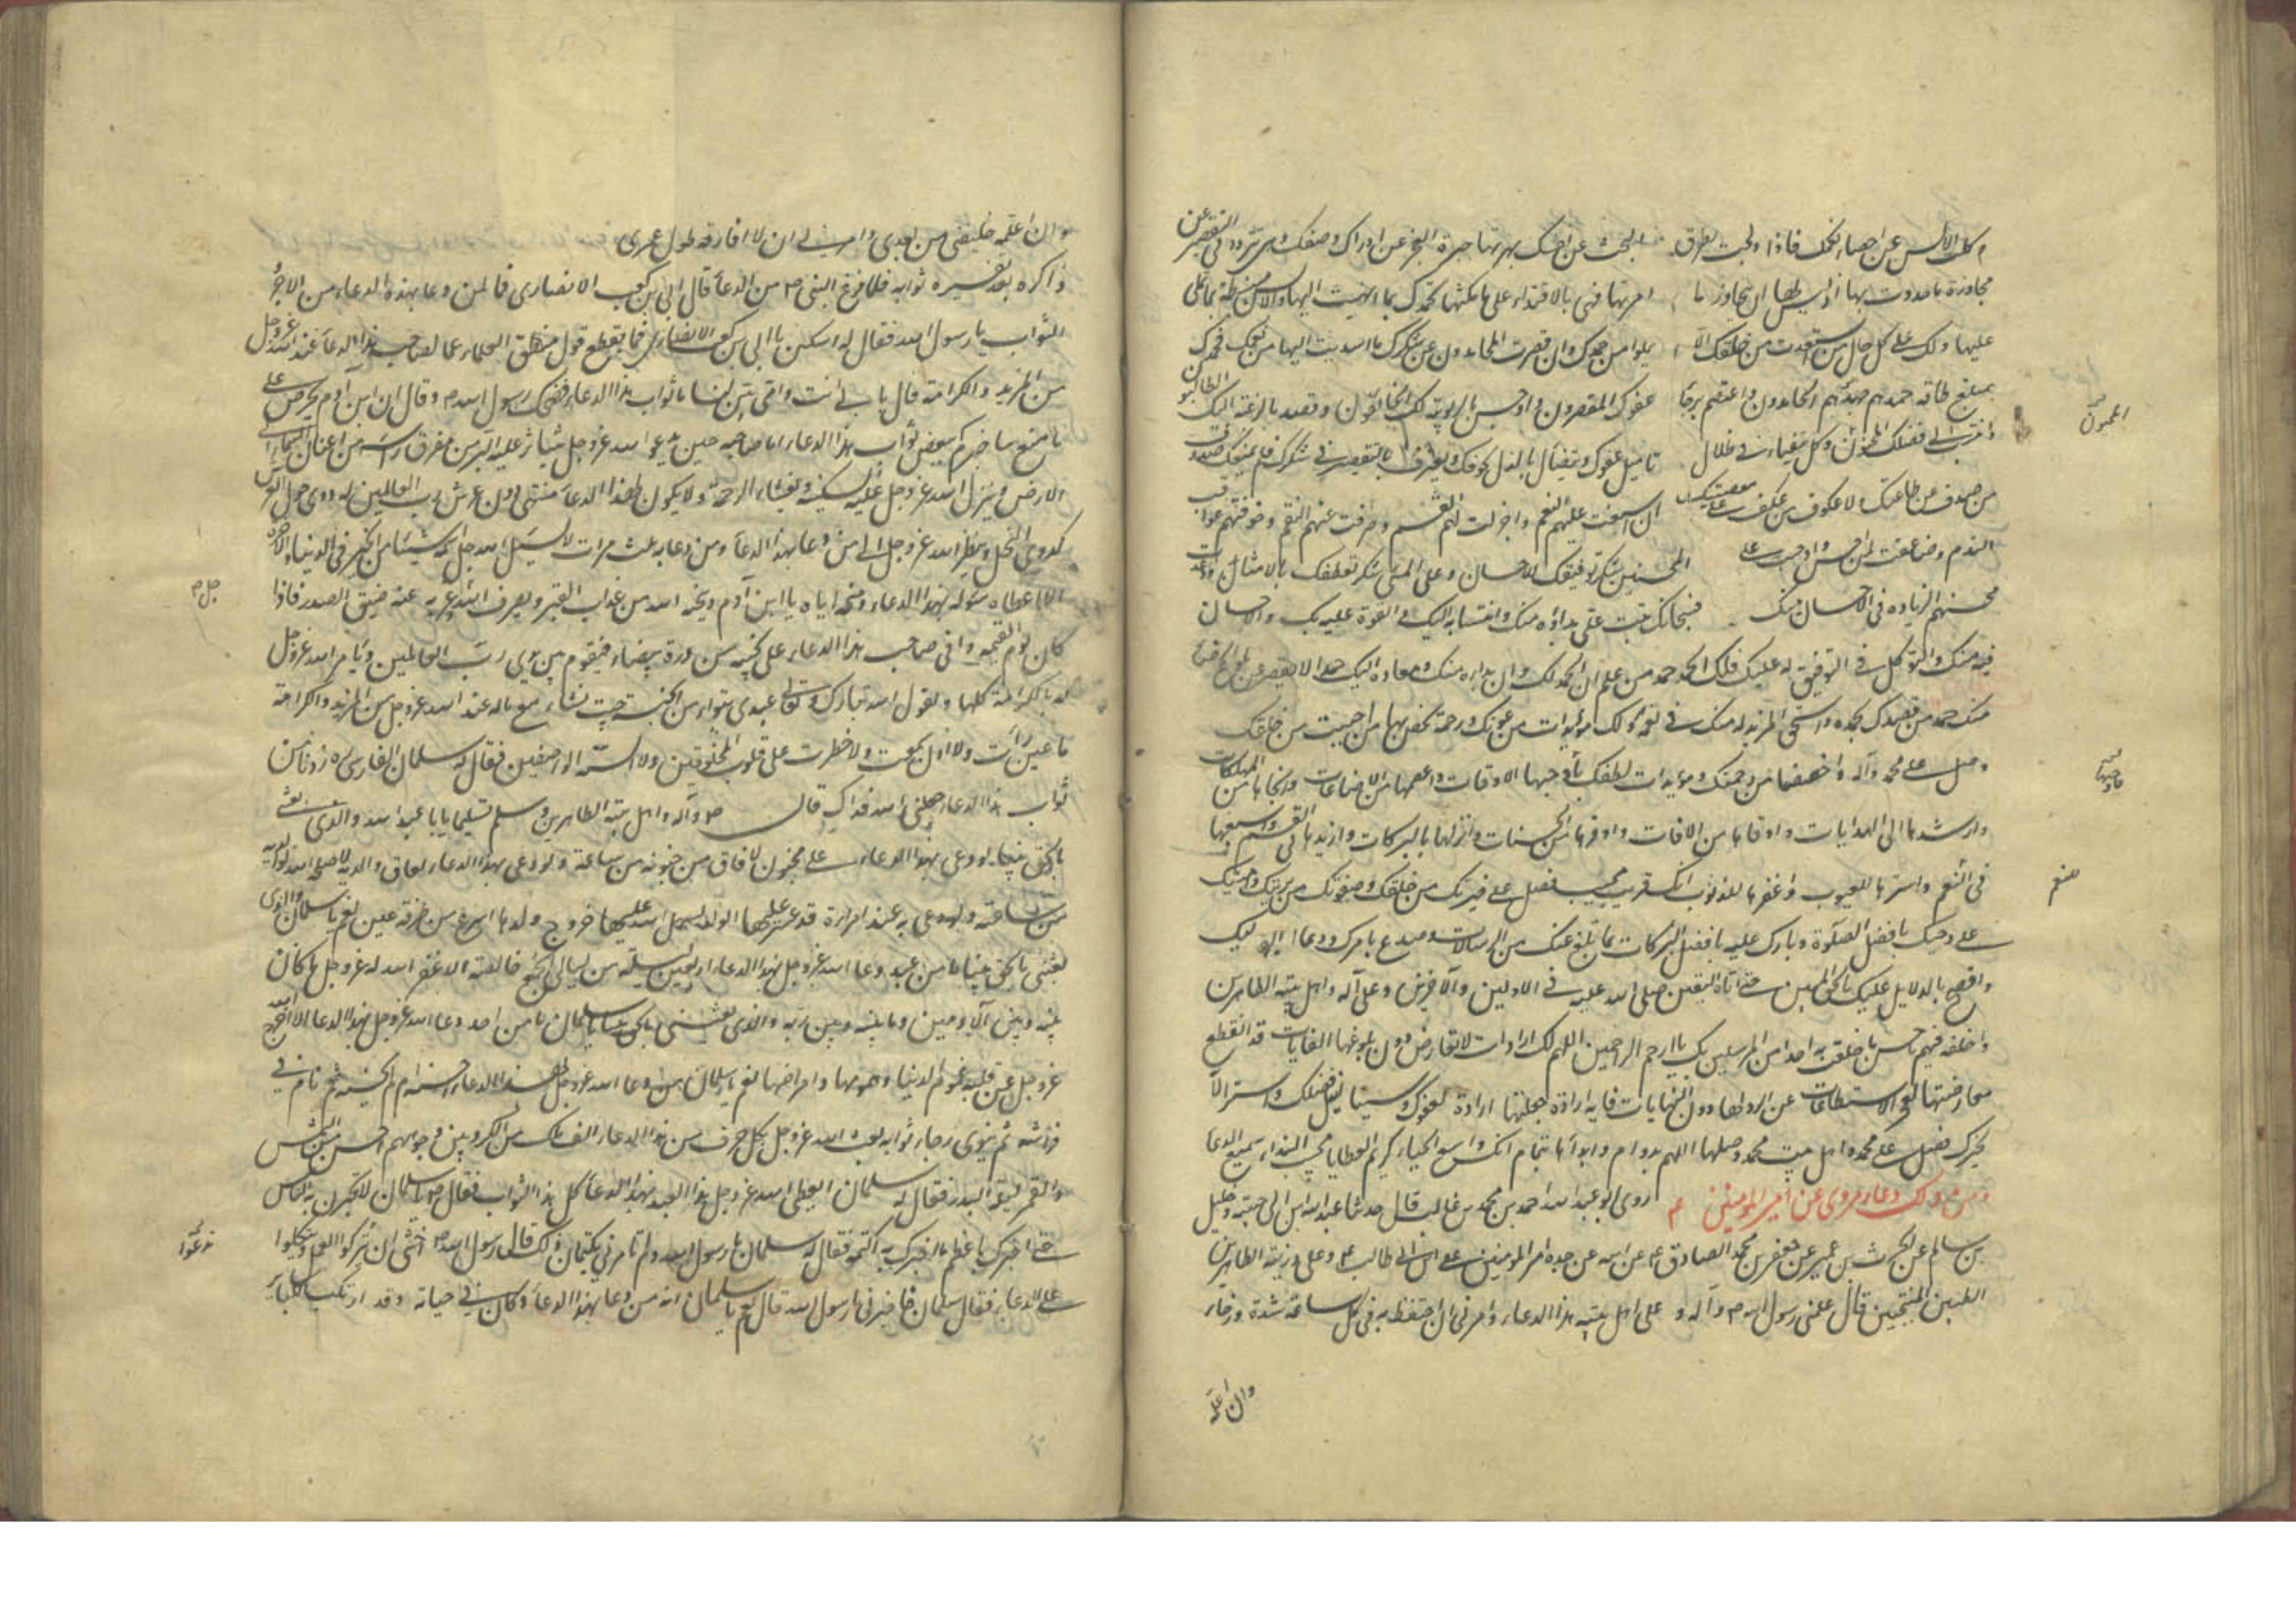 وكلت الالسن عن احصاء نعمك فاذا ولجت بطرق البحث عن نعتك بهرتها حيرة العجز عن ادراك وصفك فهي تتردد في التقصير عن
مجاوزة ما حددت لها اذ ليس لها ان تتجاوز ما امرتها فهي بالاقتدار على ما مكنتها تحمدك بما انهيت اليها والالسن منبسطة بما تملي
عليها ولك على كل حال من استعبدت من خلقك الا يملوا من حمدك وان قصرت المحامد دون عن شكرك بما اسديت اليها من نعمك فحمدك
بمبلغ طاقة حمدهم جهدهم الحامدون واعتصم برجاء عفوك المقصرون واوجس بالربوبية لك الخائفون وقصد بالرغبة اليك الطالبون
وانتسب الى فضلك المحسنون وكل يتفيأ في ظلال تاميل عفوك ويتضاءل بالذل لخوفك ويعترف بالتقصير في شكرك فلم يمنعك صدوف
من صدف عن طاعتك ولا عكوف من عكف على معصيتك ان اسبغت عليهم النعم واجزلت لهم القسم وصرفت عنهم النقم وخوفتهم عواقب
الندم وضاعفت لمن احسن واوجبت على المحسنين شكر توفيقك للاحسان وعلى المسئ شكر تعطفك بالامتنان ووعدت
محسنهم الزيادة في الاحسان منك فسبحانك تثيب على ما بدؤه منك وانتسابه اليك والقوة عليه بك والاحسان
فيه منك والتوكل في التوفيق له عليك فلك الحمد حمد من علم ان الحمد لك وان بداه منك ومعاده اليك حمدا لا يقصر عن بلوغ الرضا
منك حمد من قصدك بحمده واستحق المزيد له منك في نعمه ولك مؤيدات من عونك ورحمة تخص بها من احببت من خلقك
فصل على محمد وآله واخصصنا من رحمتك ومؤيدات لطفك باوجبها للاقات واعصمها من الاضاعات وانجاها من الهلكات
وارشدها الى الهدايات واوقاها من الافات واوفرها من الحسنات وانزلها بالبركات وازيدها في القسم واسبغها
في النعم واسترها للعيوب واغفرها للذنوب انك قريب مجيب فصل على خيرتك من خلقك وصفوتك من بريتك وامينك
على وحيك بافضل الصلوة وبارك عليه بافضل البركات بما بلغ عنك من الرسالات وصدع بامرك ودعا اليك
وافصح بالدلايل عليك بالحق المبين حتى اتاه اليقين صلى الله عليه في الاولين والآخرين وعلى آله واهل بيته الطاهرين
واخلفه فيهم باحسن ما خلفت به احدا من المرسلين بك يا ارحم الراحمين اللهم لك ارادات لا تعارض دون بلوغها الغايات قد انقطع
معارضتها بعجز الاستطاعات عن الرد لها دون النهايات فاية ارادة جعلتها ارادة لعفوك وسببا لنيل فضلك واستنزالا
لخيرك فصل على محمد واهل بيت محمد وصلها اللهم بدوام وابدأها بتمام انك واسع الحباء كريم العطايا مجيب النداء سميع الدعا
ومن ذلك دعاء مروي عن امير المؤمنين ع روى ابو عبد الله احمد بن محمد بن غالب قال حدثنا عبد الله بن ابي حبيبة وخليل
بن سالم عن الحرث بن عمير عن جعفر بن محمد الصادق ع عن ابيه عن جده امير المؤمنين علي ابن ابي طالب ع وعلى ذريته الطاهرين
الطيبين المنتجبين قال علمني رسول الله ص وآله وعلى اهل بيته هذا الدعاء وامرني ان احتفظ به في كل ساعة شدة ورخاء
وان اعلمه
وان اعلمه خليفتي من بعدي وامرني ان لا افارقه طول عمري
ذاكره بعد تفسيره ثوابه فلما فرغ النبي ص من الدعاء قال ابي بن كعب الانصاري فما لمن دعا بهذا الدعاء من الاجر
الثواب يا رسول الله فقال له اسكن يا ابي بن كعب الانصاري فما يقطع قول منطق العلماء عما لصاحب هذا الدعاء عند الله عز وجل
من المزيد والكرامة قال بابي انت وامي بين لنا ما ثواب هذا الدعاء فضحك رسول الله ص وقال ان ابن آدم يحرص على
ما منع ساخبركم ببعض ثواب هذا الدعاء اما صاحبه حين يدعو الله عز وجل يتناثر عليه البر من مفرق راسه من اعنان السماء الى
الارض وينزل الله عز وجل عليه السكينة وتغشاه الرحمة ولا يكون لهذا الدعاء منتهى دون عرش رب العالمين له دوي حول العرش
كدوي النحل وينظر الله عز وجل الى من دعا بهذا الدعاء ومن دعا به ثلث مرات لا يسئل الله جل اسمه شيئا من الخير في الدنيا والاخرة
الا اعطاه سؤله بهذا الدعاء ومنحه اياه يا ابن آدم وينجه الله من عذاب القبر ويصرف الله عز به عنه ضيق الصدر فاذا
كان يوم القيمة وافى صاحب هذا الدعاء على نجيبة من درة بيضاء فيقوم بين يدي رب العالمين ويامر الله عز وجل
له بالكرامة كلها ويقول الله تبارك وتعالى عبدي تبوأ من الجنة حيث تشاء مع ما له عند الله عز وجل من المزيد والكرامة
ما عين رأت ولا اذن سمعت ولا خطرت على قلوب المخلوقين ولا السنة الواصفين فقال له سلمان الفارسي ره زدنا من
ثواب هذا الدعاء جعلني الله فداك قال ص وآله واهل بيته الطاهرين وسلم تسليما يا ابا عبد الله والذي بعثني
بالحق نبيا لو دعى بهذا الدعاء على مجنون لافاق من جنونه من ساعته ولو دعى بهذا الدعاء لعاق والديه لاصلحه الله لوالديه
من ساعته ولو دعى به عند امراة قد عسر عليها الولد لسهل الله عليها خروج ولدها اسرع من طرفة عين نعم يا سلمان والذي
بعثني بالحق نبيا ما من عبد دعا الله عز وجل بهذا الدعاء اربعين ليلة من ليالي الجمع خالصة الا غفر الله له عز وجل ما كان
بينه وبين الآدميين وما بينه وبين ربه والذي بعثني بالحق نبيا يا سلمان ما من احد دعا الله عز وجل بهذا الدعا الا اخرج الله
عز وجل عن قلبه غموم الدنيا وهمومها وامراضها نعم يا سلمان من دعا الله عز وجل بهذا الدعاء احسنه ام لم يحسنه ثم نام في
فراشه ثم ينوي رجاء ثوابه بعث الله عز وجل بكل حرف من هذا الدعاء الف ملك من الكروبيين وجوههم احسن من الشمس
والقمر ليلة البدر فقال له سلمان ايعطي الله عز وجل هذا العبد بهذا الدعاء كل هذا الثواب فقال ص يا سلمان لا تخبرن به الناس
حتى اخبرك باعظم ما اخبرك به اكتمه فقال له سلمان يا رسول الله ولم تامرني بكتمان ذلك قال رسول الله ص اخشى ان يتركوا العمل ويتكلوا
على الدعاء فقال سلمان فاخبرني يا رسول الله قال نعم يا سلمان انه من دعا بهذا الدعاء وكان في حياته وقد ارتكب الكبائر